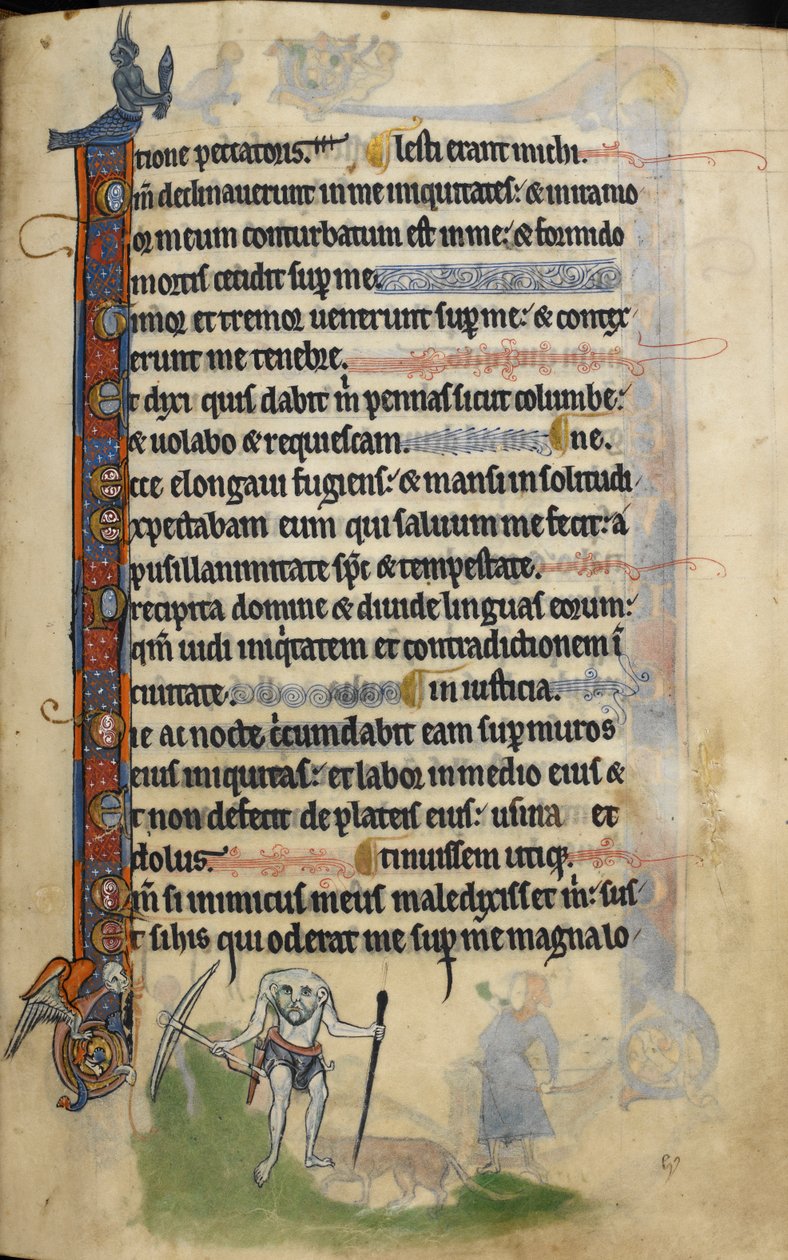 tione peccatoris. ¶ lesti erant michi.
Qm̄ declinauerunt in me iniquitates: & in ira mo
or meum conturbatum est in me: & formido
mortis cecidit sup me.
Timor et tremor uenerunt sup me: & contex
erunt me tenebre.
Et dixi quis dabit m̍ pennas sicut columbe:
& uolabo & requiescam. ¶ ne.
Ecce elongaui fugiens: & mansi in solitudi
Expectabam eum qui saluum me fecit: a
pusillanimitate spc̄ & tempestate.
Precipita domine & diuide linguas eorum:
qm̄ uidi iniq̍tatem et contradictionem ī
ciuitate. ¶ in iusticia.
Die ac nocte c̍cumdabit eam sup muros
eius iniquitas: et labor in medio eius &
Et non defecit de plateis eius: usura et
dolus. ¶ tinuissem utiq.
Qm̄ si inimicus meus maledixisset m̍: sus
Et si his qui oderat me sup me magna lo